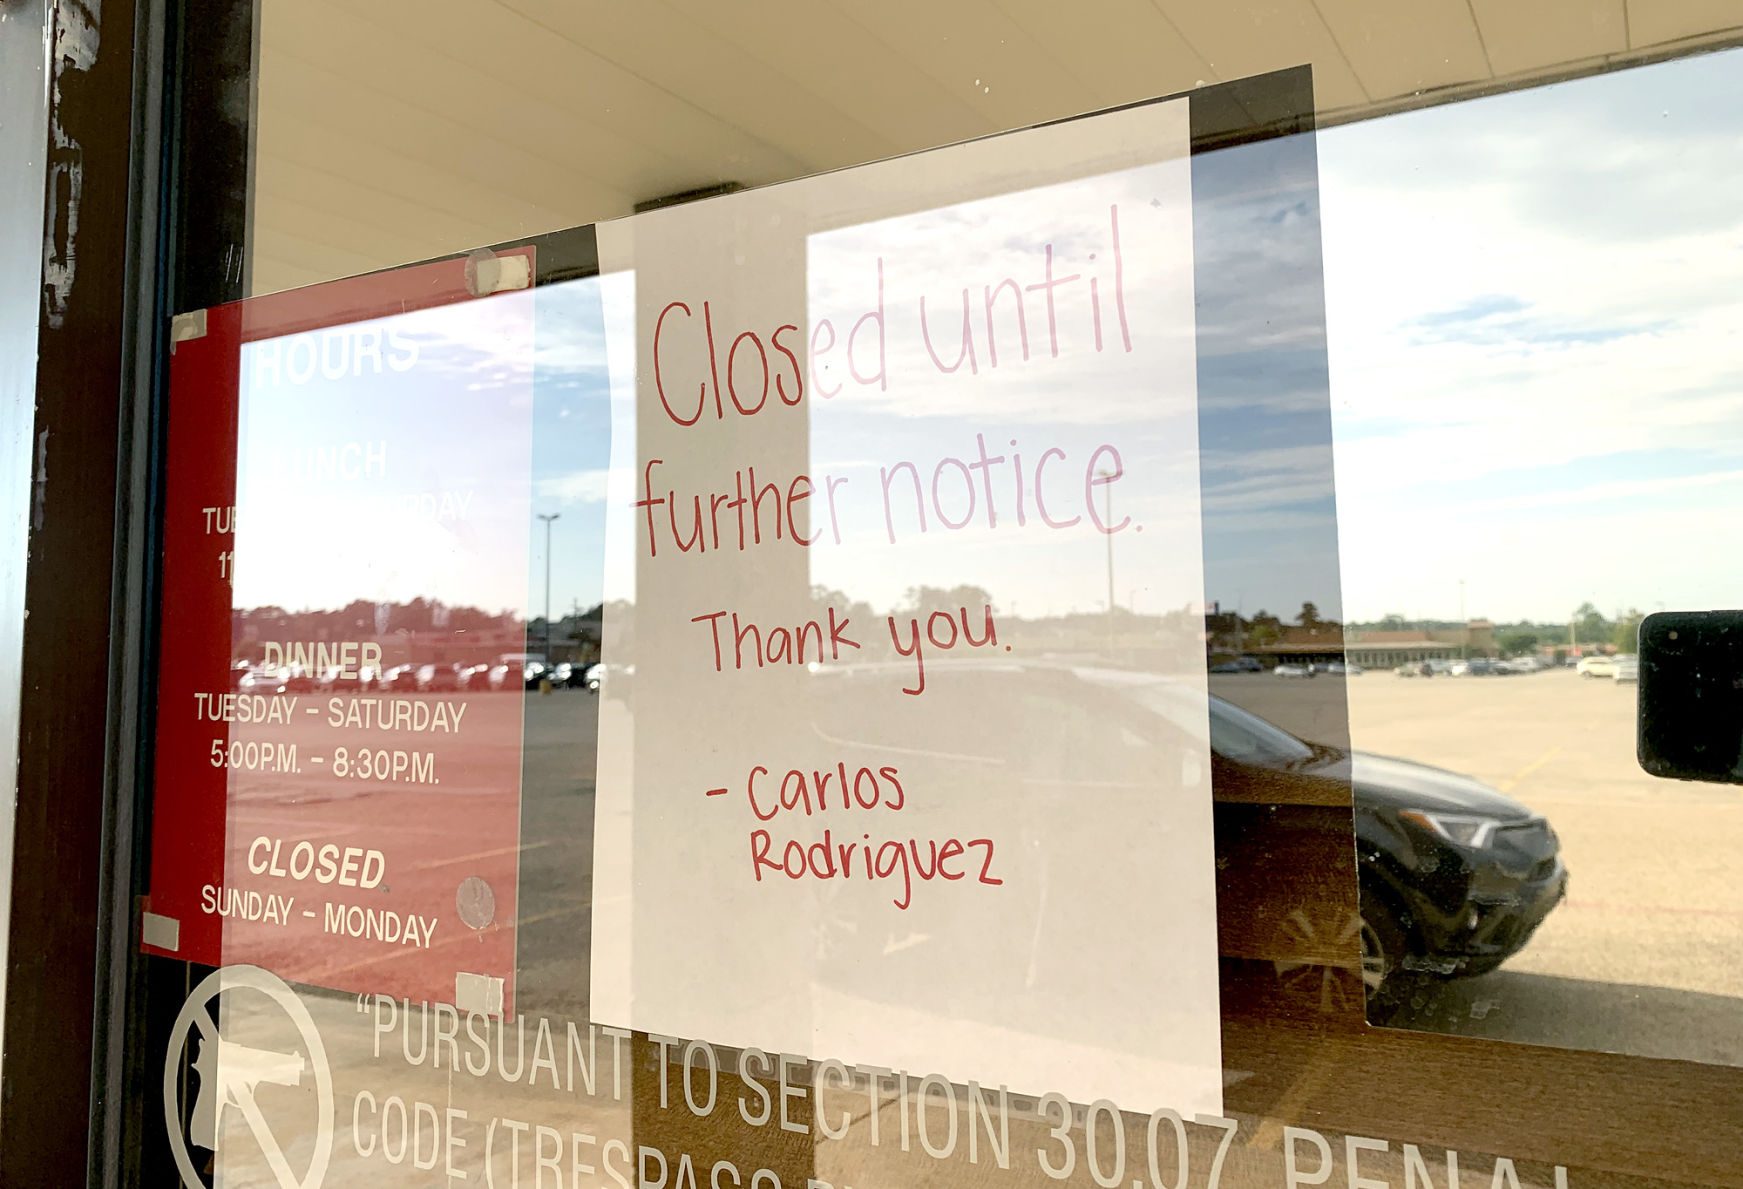 HOURS
LUNCH
DINNER
TUESDAY – SATURDAY
5:00P.M. – 8:30P.M.
CLOSED
SUNDAY – MONDAY
Closed until
further notice.
Thank you.
- Carlos
Rodriguez
"PURSUANT TO SECTION 30.07 PENAL
CODE (TRESPASS